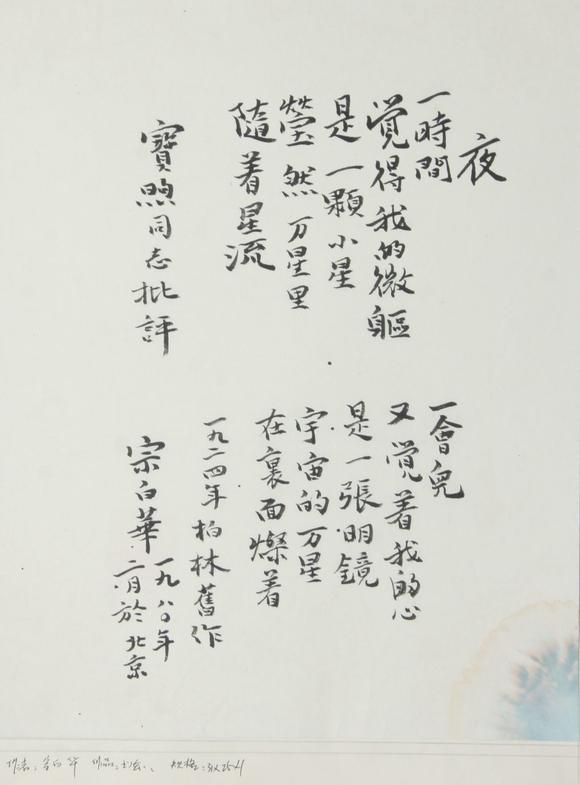 夜
一時間
覺得我的微軀
是一顆小星
瑩然万星里
隨着星流
一會兒
又覺着我的心
是一張明鏡
宇宙的万星
在裏面燦着
一九二四年柏林舊作
寶煦同志批評
宗白華
一九八〇年
二月於北京